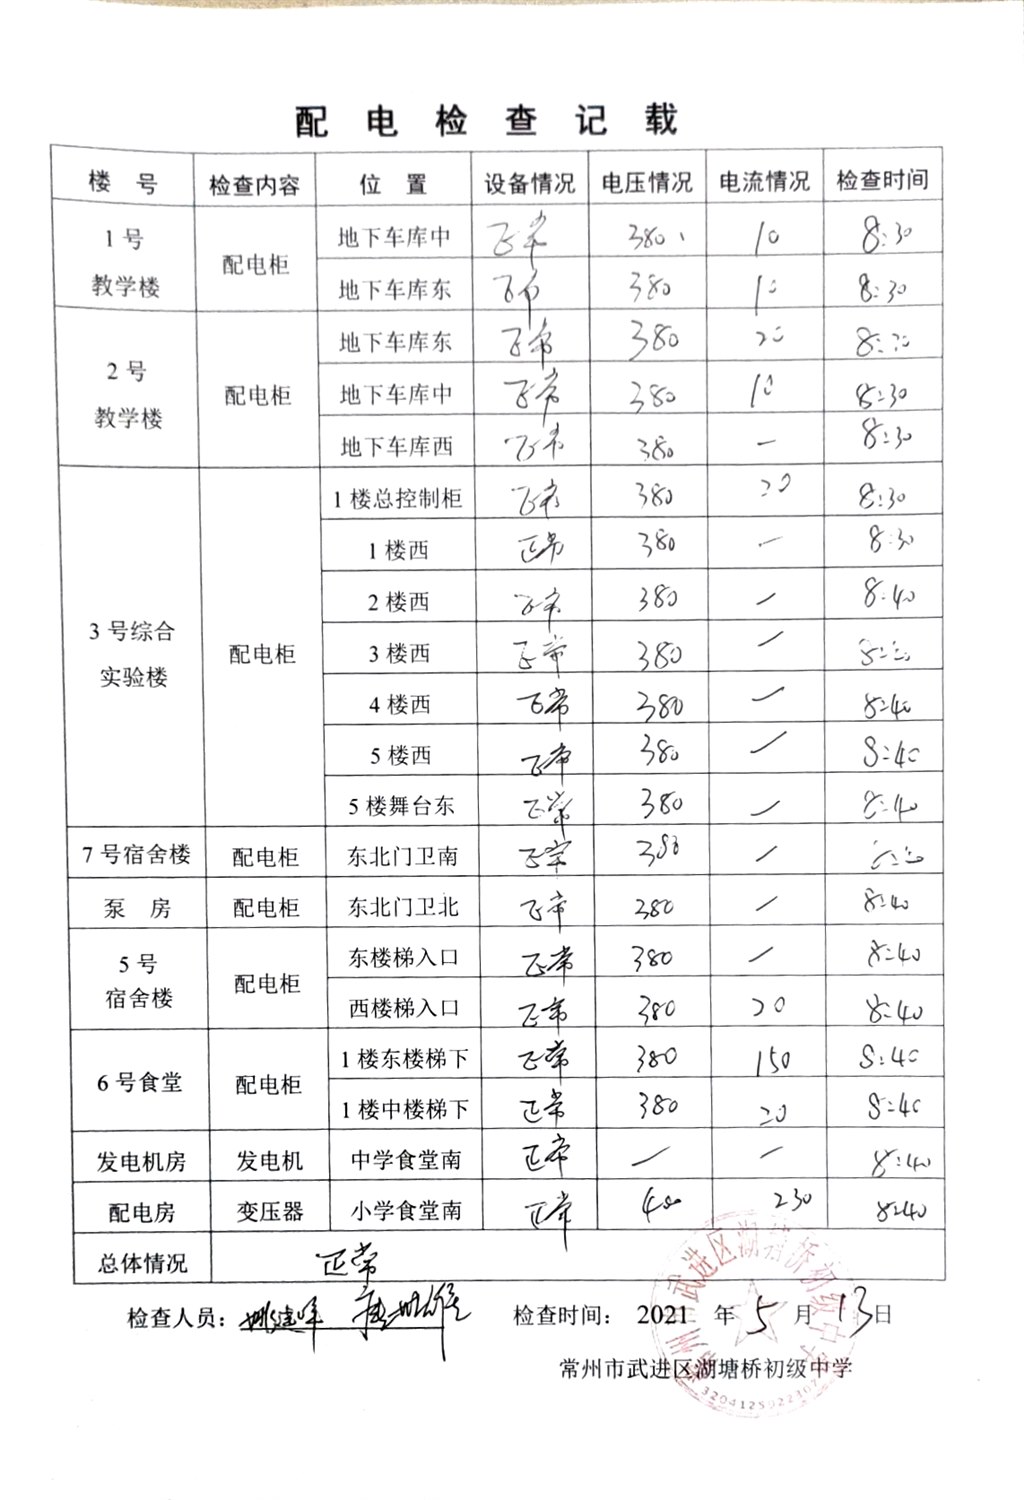 配电检查记载
楼号 检查内容 位置 设备情况 电压情况 电流情况 检查时间
1号教学楼 配电柜 地下车库中 正常 380 10 8:30
地下车库东 正常 380 10 8:30
2号教学楼 配电柜 地下车库东 正常 380 20 8:30
地下车库中 正常 380 10 8:30
地下车库西 正常 380 — 8:30
3号综合实验楼 配电柜 1楼总控制柜 正常 380 20 8:30
1楼西 正常 380 — 8:30
2楼西 正常 380 — 8:40
3楼西 正常 380 —
4楼西 正常 380 — 8:40
5楼西 正常 380 — 8:40
5楼舞台东 正常 380 — 8:40
7号宿舍楼 配电柜 东北门卫南 正常 380 —
泵房 配电柜 东北门卫北 正常 380 — 8:40
5号宿舍楼 配电柜 东楼梯入口 正常 380 — 8:40
西楼梯入口 正常 380 20 8:40
6号食堂 配电柜 1楼东楼梯下 正常 380 150 8:40
1楼中楼梯下 正常 380 20 8:40
发电机房 发电机 中学食堂南 正常 — — 8:40
配电房 变压器 小学食堂南 正常 400 230 8:40
总体情况 正常
检查人员: 检查时间: 2021年5月13日
常州市武进区湖塘桥初级中学